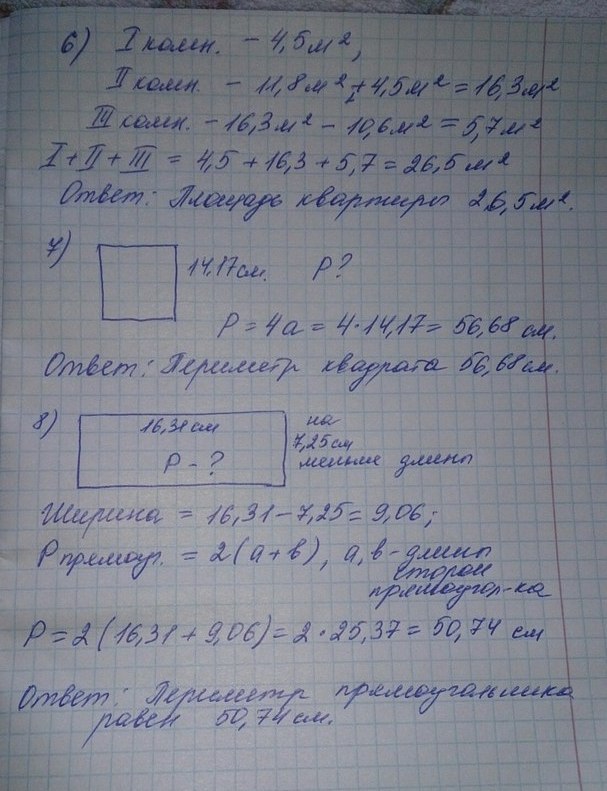 6) I комн. - 4,5 м²,
II комн. - 11,8 м² + 4,5 м² = 16,3 м²
III комн. - 16,3 м² - 10,6 м² = 5,7 м²
I + II + III = 4,5 + 16,3 + 5,7 = 26,5 м²
Ответ: Площадь квартиры 26,5 м².
7)
14,17 см. P?
P = 4a = 4·14,17 = 56,68 см.
Ответ: Периметр квадрата 56,68 см.
8)
16,31 см
P - ?
на
7,25 см
меньше длины
Ширина = 16,31 - 7,25 = 9,06;
P прямоуг. = 2(a + b), a, b - длины
сторон
прямоугол-ка
P = 2(16,31 + 9,06) = 2·25,37 = 50,74 см
Ответ: Периметр прямоугольника
равен 50,74 см.